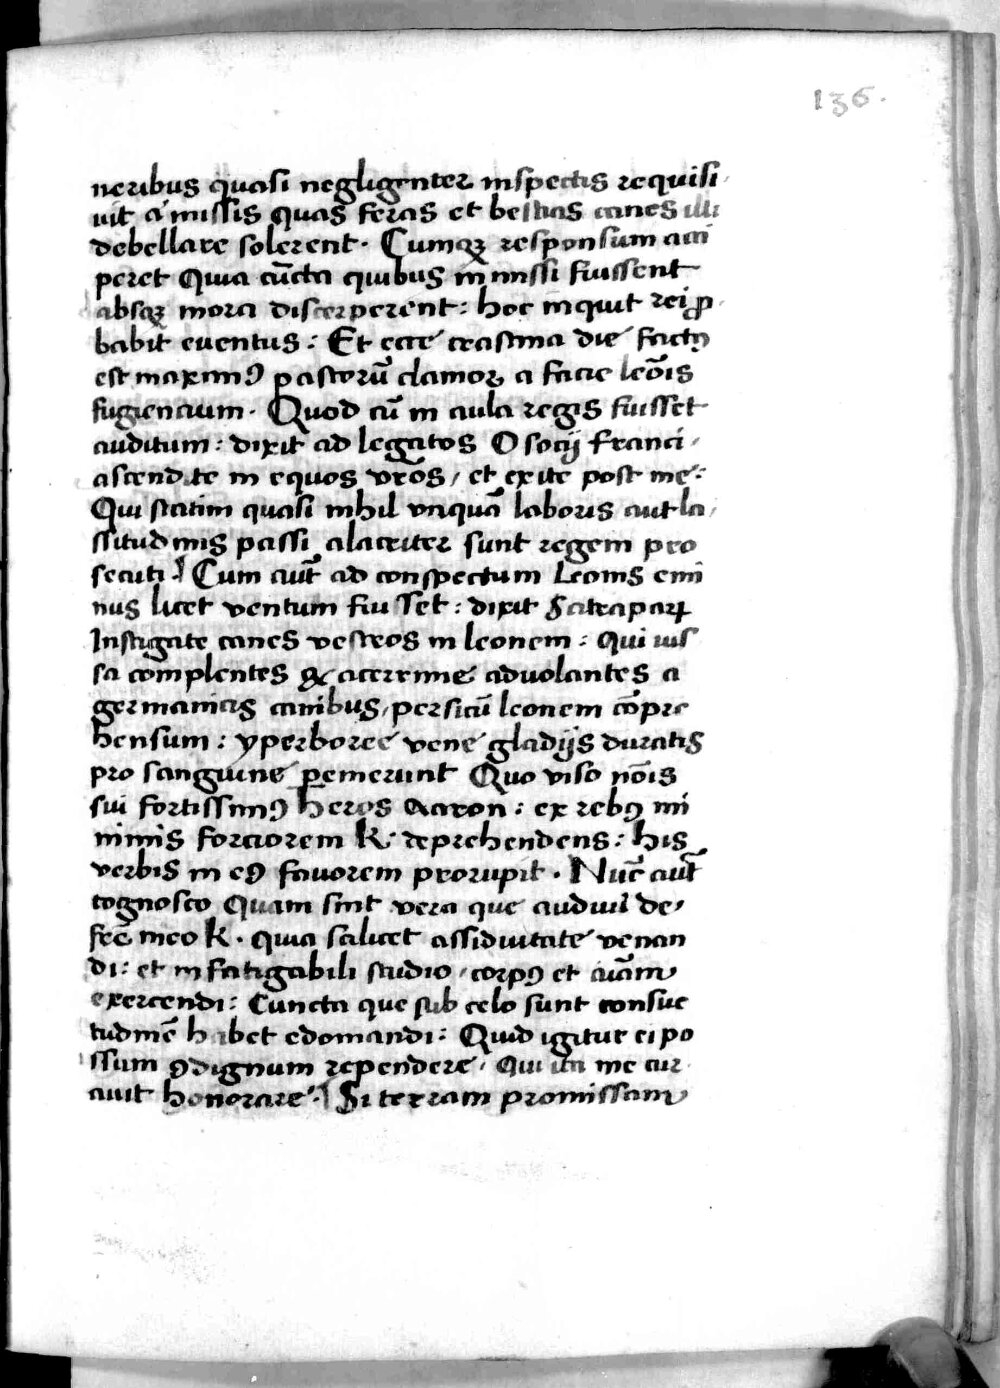 136.
neribus quasi negligenter inspectis requisi
uit a missis quas feras et bestias canes illi
debellare solerent. Cumqꝫ responsum acci
peret Quia cūcta quibus in missi fuissent
absqꝫ mora discerperent: hoc inquit rei ꝓ
babit euentus: Et ecce crastina die factꝰ
est maximꝰ pastorū clamor a facie leōis
fugiencium. Quod cū in aula regis fuisset
auditum: dixit ad legatos O socij franci
ascendite in equos vr̄os, et exite post me:
Qui statim quasi nihil vnquā laboris aut la
ssitudinis passi alacriter sunt regem pro
secuti. Cum aut̄ ad conspectum Leonis emi
nus licet ventum fuisset: dixit Satrapaꝝ
Instigate canes vestros in leonem: qui ius
sa complentes et acerrime aduolantes a
germanicis canibus, persicū leonem cōpre
hensum: yperboree vene gladijs duratis
pro sanguine ꝑemerunt Quo viso nōis
sui fortissimꝰ heros Aaron: ex rebꝰ mi
nimis forciorem K. deprehendens: his
verbis in eꝰ fauorem prorupit. Nūc aut̄
cognosco Quam sint vera que audiui de
fr̄e meo K. quia scilicet assiduitate venan
di: et infatigabili studio, corpꝰ et aīam
exercendi: Cuncta que sub celo sunt consue
tudinē habet edomandi: Quid igitur ei po
ssum ꝯdignum rependere, Qui ita me cur
auit honorare. Si terram promissam